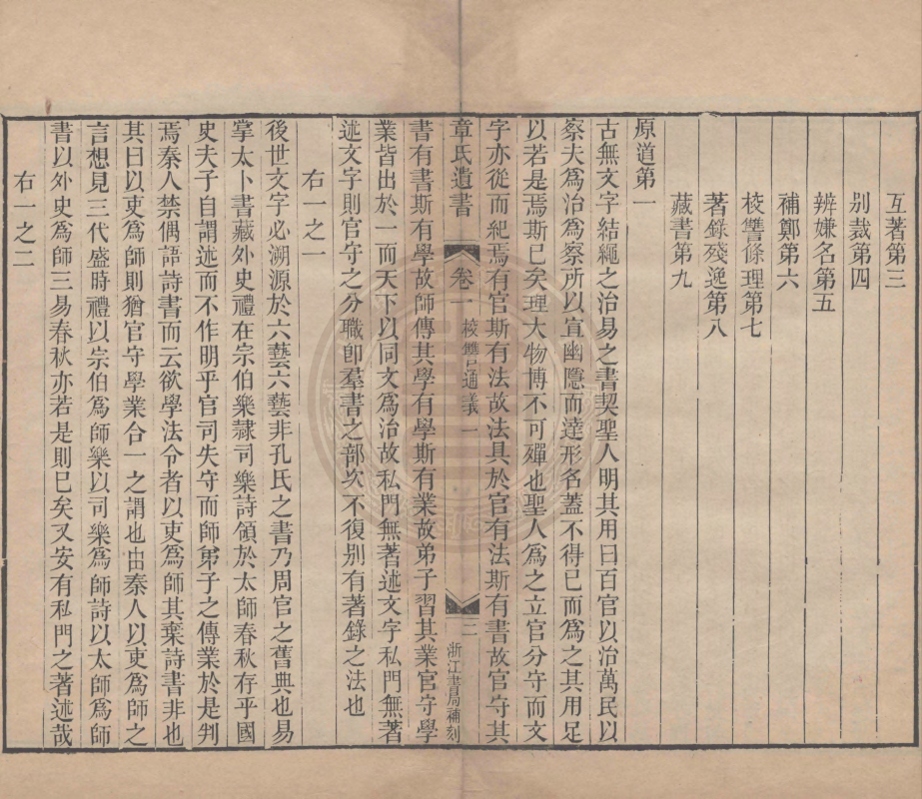 互著第三
別裁第四
辨嫌名第五
補鄭第六
校讐條理第七
著錄殘逸第八
藏書第九
原道第一
古無文字結繩之治易之書契聖人明其用曰百官以治萬民以
察夫爲治爲察所以宣幽隱而達形名蓋不得已而爲之其用足
以若是焉斯已矣理大物博不可殫也聖人爲之立官分守而文
字亦從而紀焉有官斯有法故法具於官有法斯有書故官守其
章氏遺書 卷一 校讐通義一 三 浙江書局補刻
書有書斯有學故師傳其學有學斯有業故弟子習其業官守學
業皆出於一而天下以同文爲治故私門無著述文字私門無著
述文字則官守之分職即羣書之部次不復別有著錄之法也
右一之一
後世文字必溯源於六藝六藝非孔氏之書乃周官之舊典也易
掌太卜書藏外史禮在宗伯樂隸司樂詩領於太師春秋存乎國
史夫子自謂述而不作明乎官司失守而師弟子之傳業於是判
焉秦人禁偶語詩書而云欲學法令者以吏爲師其棄詩書非也
其曰以吏爲師則猶官守學業合一之謂也由秦人以吏爲師之
言想見三代盛時禮以宗伯爲師樂以司樂爲師詩以太師爲師
書以外史爲師三易春秋亦若是則已矣又安有私門之著述哉
右一之二